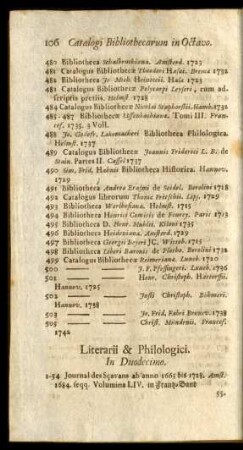 106 Catalogi Bibliothecarum in Octavo.
480 Bibliotheca Schalbruchiana. Amstard. 1723
481 Catalogus Bibliothecæ Theodori Hasæi. Bremæ 1732
482 Bibliotheca Jo. Mich. Heineccii. Halæ 1723
483 Catalogus Bibliothecæ Polycarpi Leyseri, cum ad-
scriptis pretiis. Helmst. 1728
484 Catalogus Bibliothecæ Nicolai Staphorstii. Hamb. 1732
485-487 Bibliothecæ Uffenbachianæ. Tomi III. Franc-
cof. 1735. 3 Voll.
488 Jo. Gothofr. Lakemacheri Bibliotheca Philologica.
Helmst. 1737
489 Catalogus Bibliothecæ Joannis Friderici L. B. de
Stain. Partes II. Cassel 1737
490 Sim. Frid. Hahnii Bibliotheca Historica. Hanovr.
1729
491 Bibliotheca Andreæ Erasmi de Seidel. Berolini 1718
492 Catalogus librorum Thomæ Fritschii. Lips. 1729
493 Bibliotheca Warlhosiana. Helmst. 1715
494 Bibliotheca Henrici Comitis de
495 Bibliotheca D. Henr. Muhlii. Kilon. 1735
496 Bibliotheca Heideniana. Amstard. 1729
497 Bibliotheca Georgii Beyeri JC. Witteb. 1715
498 Bibliotheca Liberi Baronis de Plotho. Berolini 1732
499 Catalogus Bibliothecæ Reimerianæ. Luneb. 1720
500 J. F. Pfeffingeri. Luneb. 1736
501 Henr. Christoph.
Hanovr. 1725
502 Justi Christoph. Böhmeri.
Hanovr. 1733
503 Jo. Frid. Fabri Brunov. 1738
505 Christ. Francof.
1742
Literarii & Philologici.
In Duodecimo.
1-54 Journal des Sçavans ab anno 1665 bis 1718. Amst.
1684. seqq. Volumina LIV. in Frantz-Band
55.